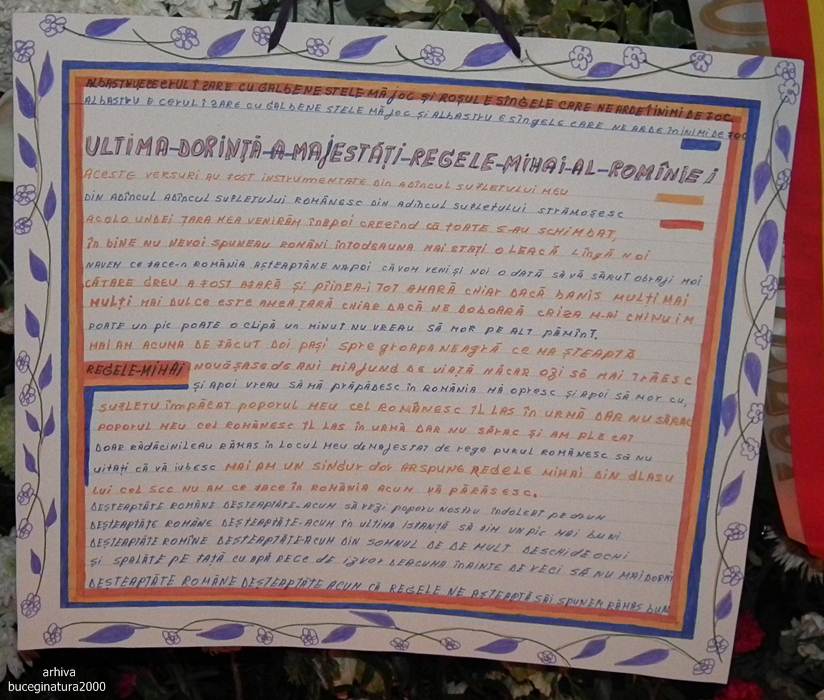 ALBASTRU E CERUL Î ZARE CU GALBENE STELE MĂ JOC ȘI ROȘUL E SÎNGELE CARE NE ARDE Î INIMI DE FOC
ALBASTRU E CERUL Î ZARE CU GALBENE STELE MĂ JOC ȘI ALBASTRU E SÎNGELE CARE NE ARDE ÎN INIMI DE FOC
ULTIMA-DORINȚĂ-A-MAJESTĂȚI-REGELE-MIHAI-AL-ROMÎNIEI
ACESTE VERSURI AU FOST INSTRUMENTATE DIN ADÎNCUL SUFLETULUI MEU
DIN ADÎNCUL ADÎNCUL SUFLETULUI ROMÂNESC DIN ADÎNCUL SUFLETULUI STRĂMOȘESC
ACOLO UNDEI ȚARA MEA VENIRĂM ÎNAPOI CREEÎND CĂ TOATE S-AU SCHIMBAT,
ÎN BINE NU NEVOI SPUNEAU ROMÂNI ÎNTODEAUNA MAI STAȚI O LEACĂ LÎNGĂ NOI
NAVEM CE FACE-N ROMÂNIA AȘTEAPTĂNE NAPOI CĂ VOM VENI ȘI NOI O DATĂ SĂ VĂ SĂRUT OBRAJI MOI
CĂTARE GREU A FOST AFARĂ ȘI PÎINEA-I TOT AMARĂ CHIAR DACĂ BANIS MULȚI MAI
MULȚI MAI DULCE ESTE AMEAȚARĂ CHIAR DACĂ NE DOBOARĂ CRIZA M-AI CHINUIM
POATE UN PIC POATE O CLIPĂ UN MINUT NU VREAU SĂ MOR PE ALT PĂMÎNT.
MAI AM ACUMA DE FĂCUT DOI PAȘI SPRE GROAPA NEAGRĂ CE MA ȘTEAPTĂ
REGELE-MIHAI NOUĂȘASE DE ANI MIAJUNG DE VIAȚĂ MĂCAR OZI SĂ MAI TRĂESC
ȘI APOI VREAU SĂ MĂ PRĂPĂDESC ÎN ROMÂNIA MĂ OPRESC ȘI APOI SĂ MOR CU,
SUFLETU ÎMPĂCAT POPORUL MEU CEL ROMÂNESC ÎL LAS ÎN URMĂ DAR NU SĂRAC
POPORUL MEU CEL ROMÂNESC ÎL LAS ÎN URMĂ DAR NU SĂRAC ȘI AM PLECAT
DOAR RĂDĂCINILEAU RĂMAS ÎN LOCUL MEU DE MAJESTAT DE REGE PURUL ROMÂNESC SĂ NU
UITAȚI CĂ VĂ IUBESC MAI AM UN SINGUR DOR ARSPUNE REGELE MIHAI DIN GLASU
LUI CEL SEC NU AM CE FACE ÎN ROMÂNIA ACUM VĂ PĂRĂSESC.
DEȘTEAPTĂTE ROMÂNE DEȘTEAPTĂTE-ACUM SĂ VEZI POPORU NOSTRU ÎNDOLEAT PE DRUM
DEȘTEAPTĂTE ROMÂNE DEȘTEAPTĂTE-ACUM ÎN ULTIMA ISTANȚĂ SĂ FIM UN PIC MAI BUNI
DEȘTEAPTĂTE ROMÎNE DEȘTEAPTĂTE ACUM DIN SOMNUL DE DE MULT DESCHIDE OCHI
ȘI SPALĂTE PE FAȚĂ CU APĂ RECE DE IZVOR DEACUMA ÎNAINTE DE VECI SĂ NU MAI DORMI
DEȘTEAPTĂTE ROMÂNE DEȘTEAPTĂTE ACUM CĂ REGELE NE AȘTEAPTĂ SĂI SPUNEM RĂMAS BUN
arhiva
buceginatura2000